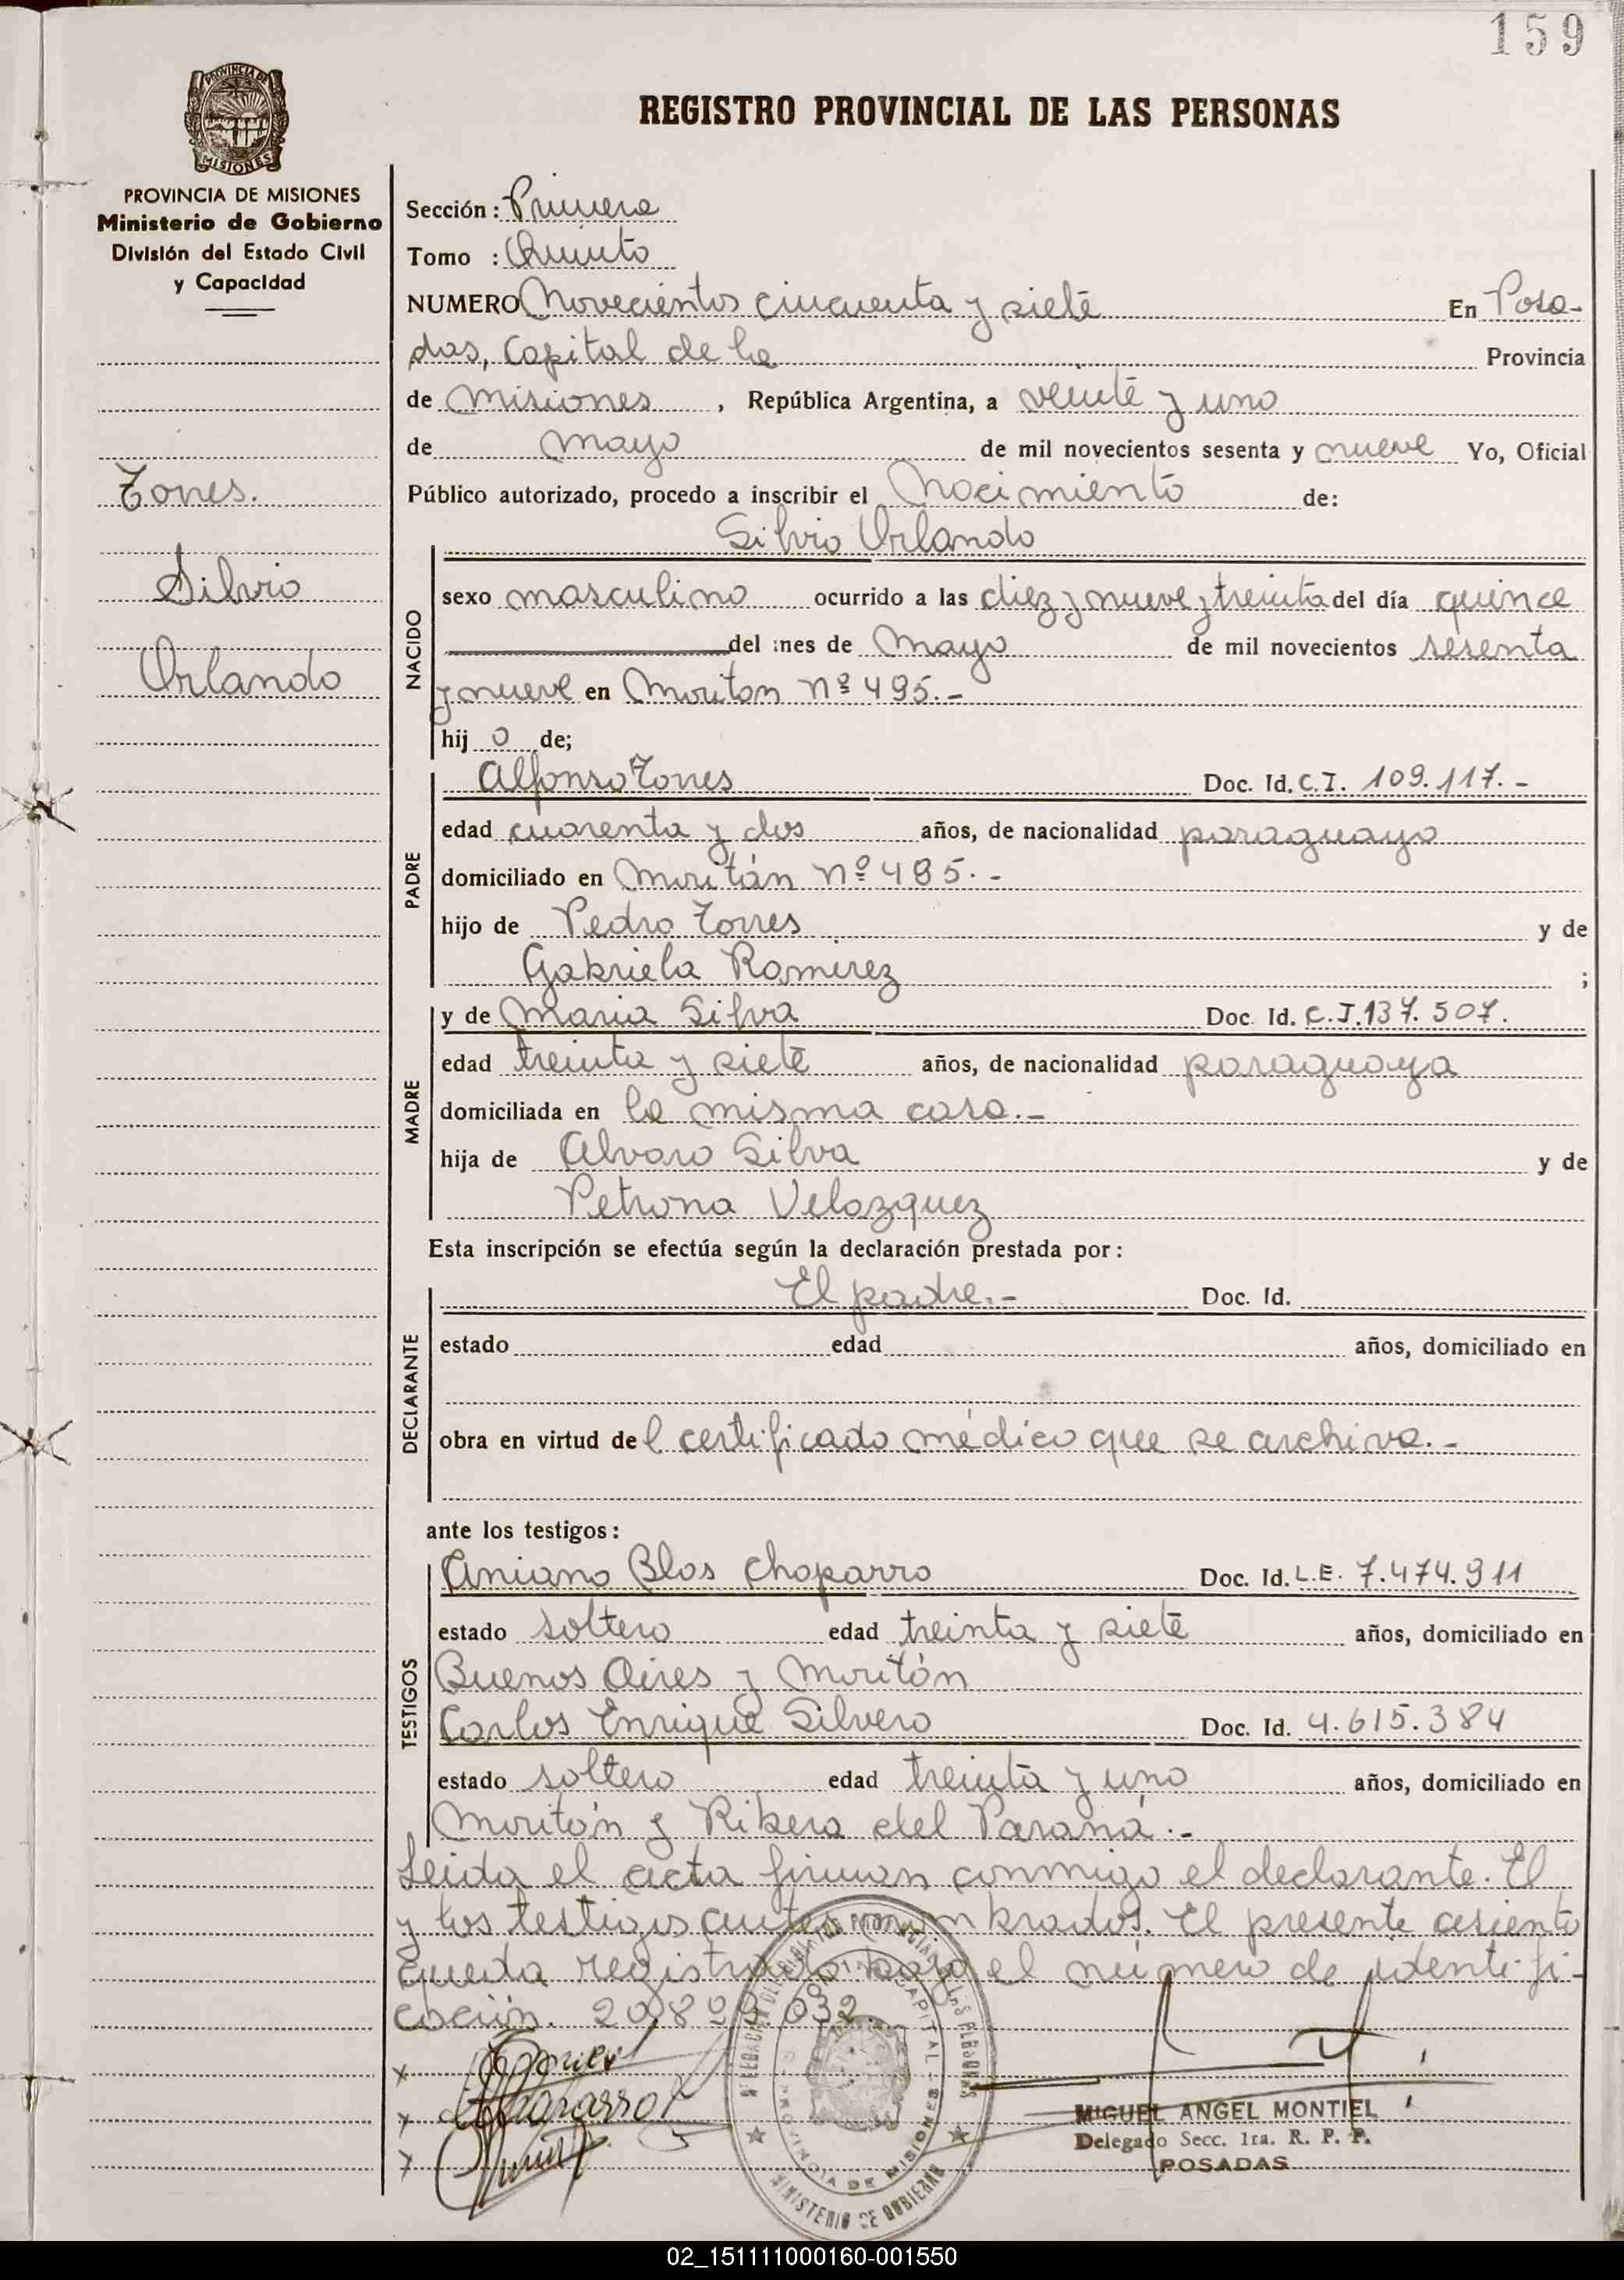 159
PROVINCIA DE MISIONES
REGISTRO PROVINCIAL DE LAS PERSONAS
PROVINCIA DE MISIONES
Ministerio de Gobierno
División del Estado Civil
y Capacidad
Torres.
Silvio
Orlando
Sección: Primera
Tomo : Quinto
NUMERO Novecientos cincuenta y siete En Posa-
das, Capital de la Provincia
de Misiones, República Argentina, a veinte y uno
de mayo de mil novecientos sesenta y nueve Yo, Oficial
Público autorizado, procedo a inscribir el Nacimiento de:
Silvio Orlando
NACIDO
sexo masculino ocurrido a las diez y nueve y treinta del día quince
del mes de Mayo de mil novecientos sesenta
y nueve en Moritan Nº 495.-
hij o de;
PADRE
Alfonso Torres Doc. Id. C.I. 109.117.-
edad cuarenta y dos años, de nacionalidad paraguayo
domiciliado en Moritán Nº 495.-
hijo de Pedro Torres y de
Gabriela Ramirez ;
MADRE
y de Maria Silva Doc. Id. C.I. 137.507.
edad treinta y siete años, de nacionalidad paraguaya
domiciliada en la misma casa.-
hija de Alvaro Silva y de
Petrona Velazquez
Esta inscripción se efectúa según la declaración prestada por:
DECLARANTE
El padre.- Doc. Id.
estado edad años, domiciliado en
obra en virtud del certificado médico que se archiva.-
ante los testigos:
TESTIGOS
Aniano Blas Chaparro Doc. Id. L.E. 7.474.911
estado soltero edad treinta y siete años, domiciliado en
Buenos Aires y Moritán
Carlos Enrique Silvero Doc. Id. 4.615.384
estado soltero edad treinta y uno años, domiciliado en
Moritán y Ribera del Paraná.-
Leida el acta firman conmigo el declarante. El
y los testigos antes nombrados. El presente asiento
queda registrado bajo el número de identifi-
cación. 20.829.032.
MIGUEL ANGEL MONTIEL
Delegado Secc. 1ra. R. P. P.
POSADAS
PROVINCIA DE MISIONES
MINISTERIO DE GOBIERNO
02_151111000160-001550